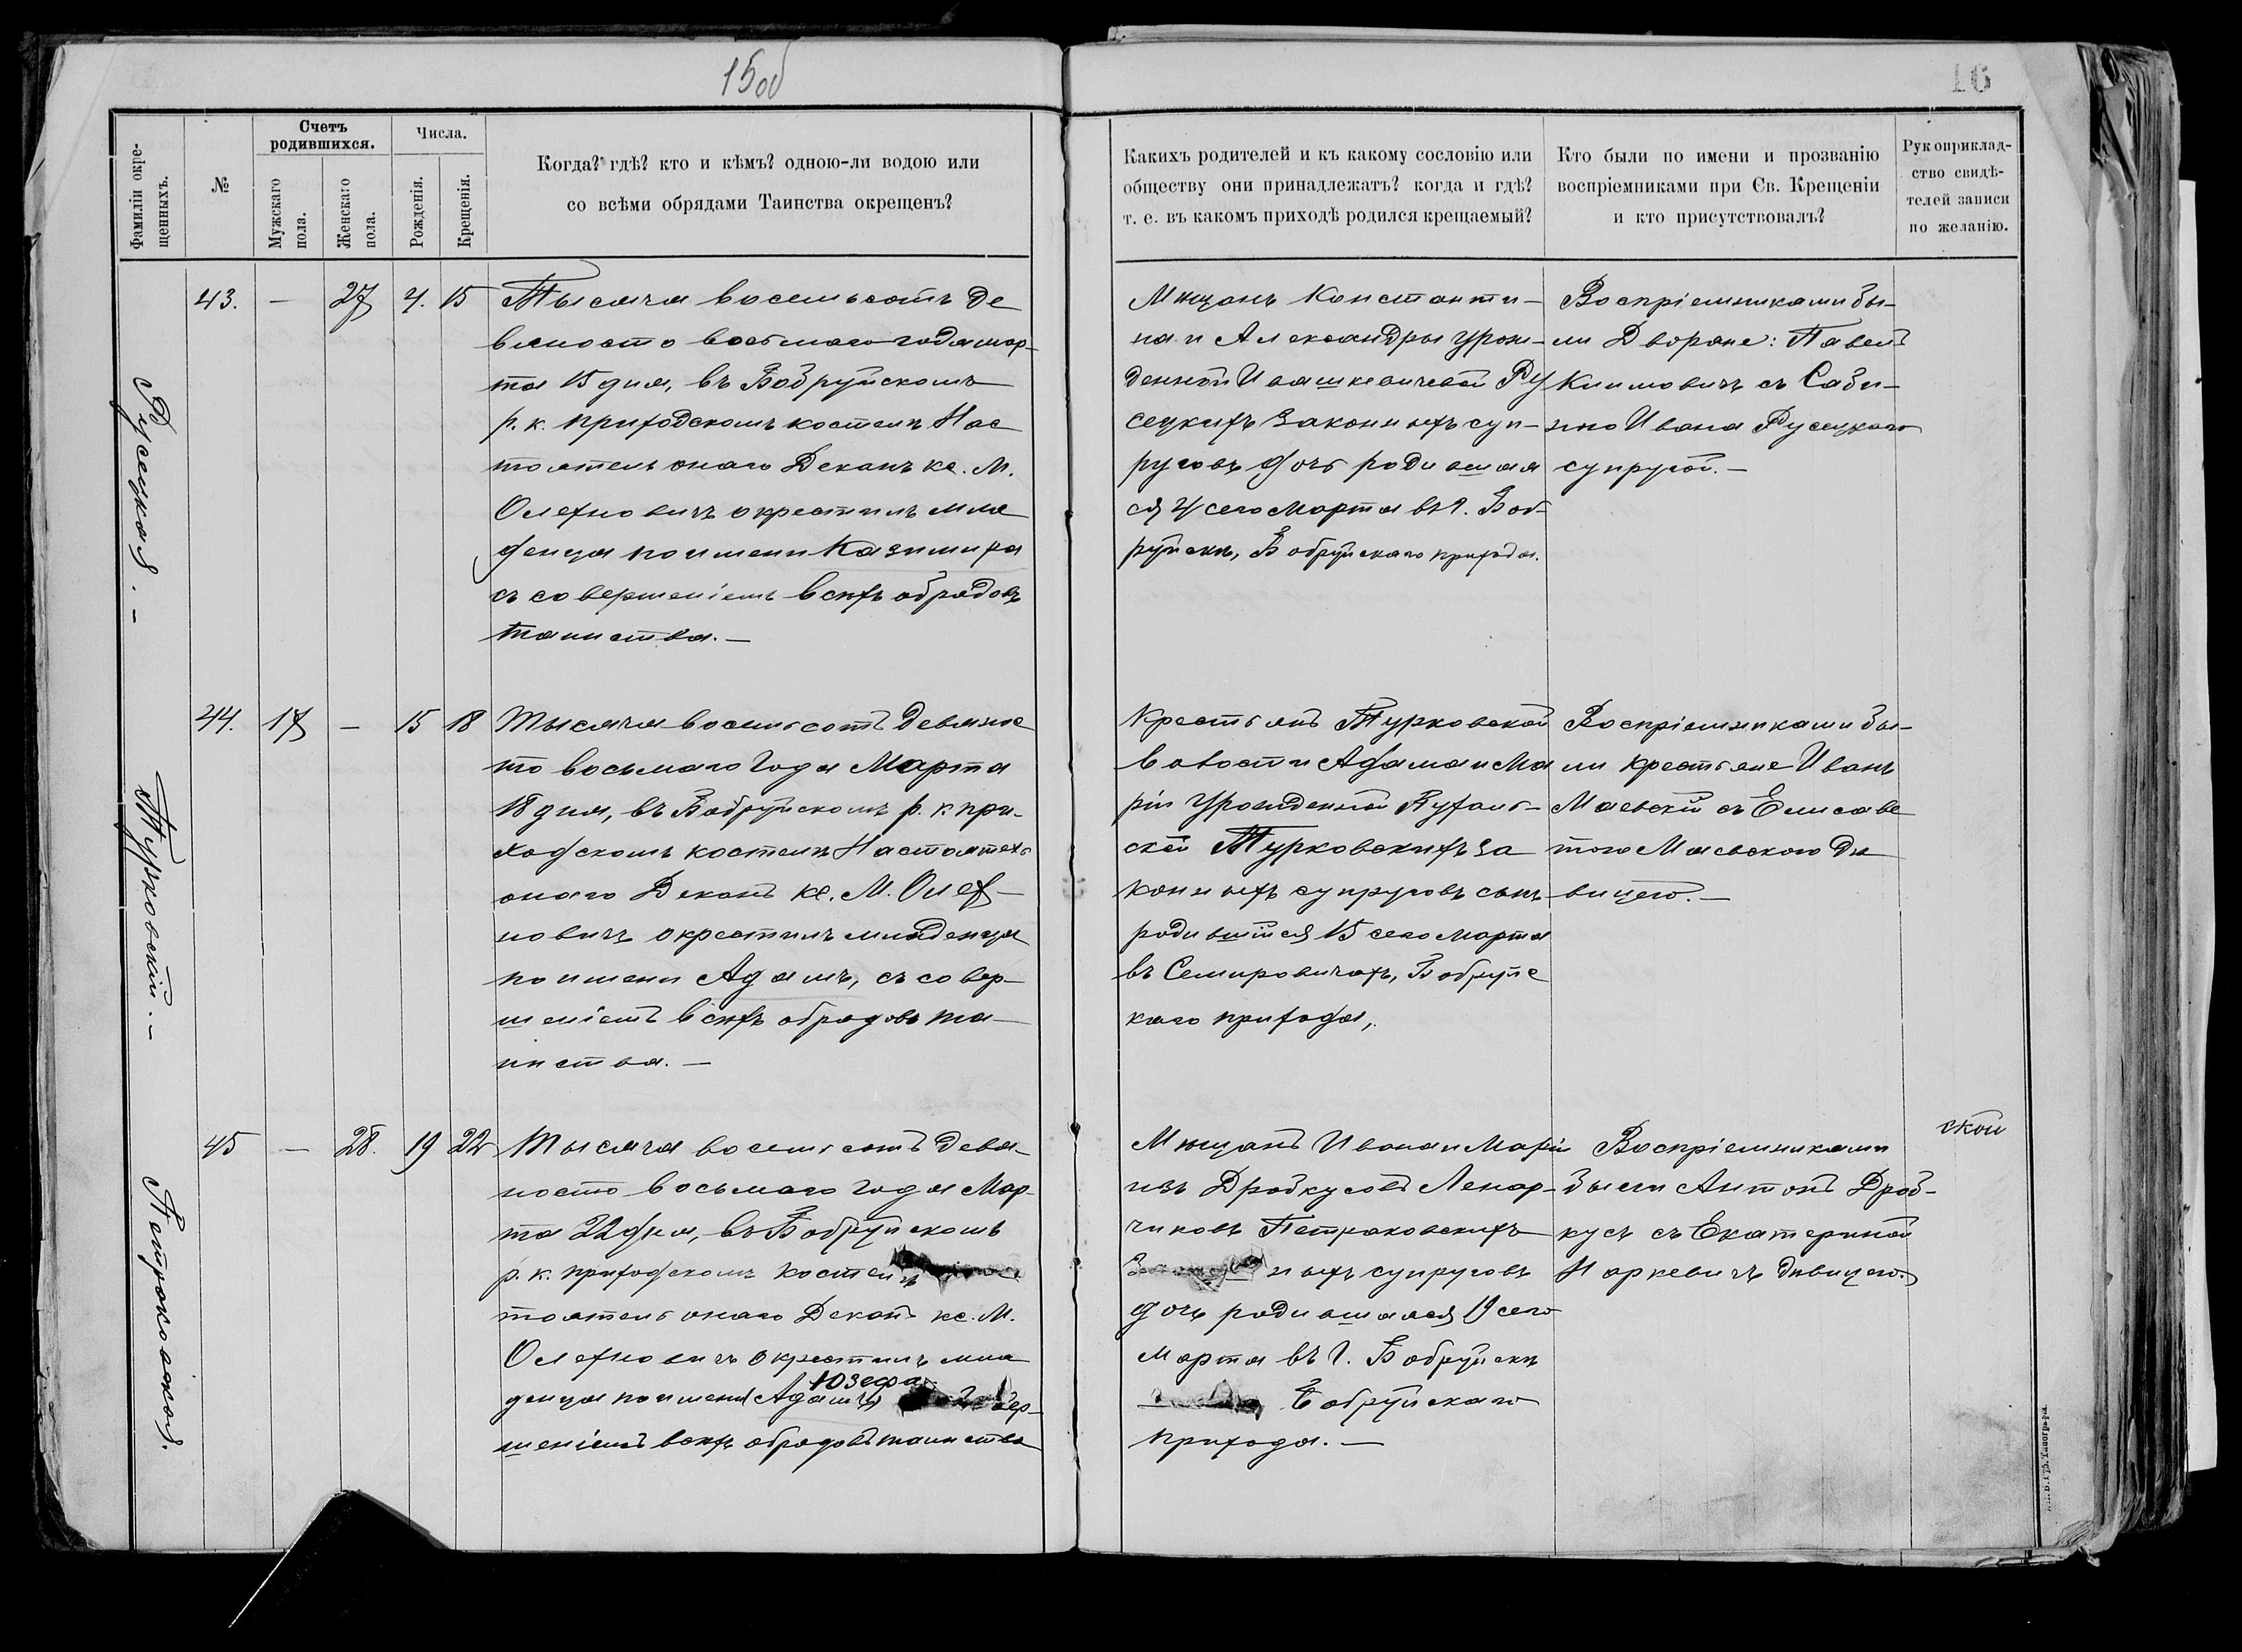 15об
16
Фамиліи окре-
щенныхъ.
№
Счетъ
родившихся.
Мужскаго
пола.
Женскаго
пола.
Числа.
Рожденія.
Крещенія.
Когда? гдѣ? кто и кѣмъ? одною-ли водою или
со всѣми обрядами Таинства окрещенъ?
Какихъ родителей и къ какому сословію или
обществу они принадлежатъ? когда и гдѣ?
т. е. въ какомъ приходѣ родился крещаемый?
Кто были по имени и прозванію
воспріемниками при Св. Крещеніи
и кто присутствовалъ?
Рукоприклад-
ство свидѣ-
телей записи
по желанію.
Русецкая. —
43. — 27 4. 15
Тысяча восемьсотъ де
вяносто восьмаго года мар-
та 15 дня, въ Бобруйскомъ
р. к. приходскомъ костелѣ Нас
тоятель онаго Деканъ кс. М.
Олехновичъ окрестилъ мла
денца по имени Казимира
съ совершеніемъ всѣхъ обрядовъ
таинства. —
Мѣщанъ Константи-
на и Александры урож-
денной Ивашкевичевой Ру
сецкихъ законныхъ суп-
руговъ дочь родившая
ся 4 сего Марта въ г. Боб-
руйскѣ, Бобруйскаго прихода.
Воспріемниками бы-
ли Дворяне: Павелъ
Климовичъ съ Саби-
ною Ивана Русецкаго
супругой. —
Турковскій. —
44. 17 — 15 18
Тысяча восемьсотъ девянос
то восьмаго года Марта
18 дня, въ Бобруйскомъ р. к. при-
ходскомъ костелѣ Настоятель
онаго Деканъ кс. М. Олех-
новичъ окрестилъ младенца
по имени Адамъ, съ совер-
шеніемъ всѣхъ обрядовъ та-
инства. —
Крестьянъ Турковской
волости Адама и Ма
ріи урожденной
ской Турковскихъ за
конныхъ супруговъ сынъ
родившійся 15 сего марта
въ Семировичахъ, Бобруйс
каго прихода,.
Воспріемниками бы-
ли крестьяне Иванъ
Маевскій съ Елисаве
тою Маевскою дѣ
вицею. —
Петраковская.
45 — 28. 19 22
Тысяча восемьсотъ девя-
носто восьмаго года Мар-
та 22 дня, въ Бобруйскомъ
р. к. приходскомъ костелѣ
тоятель онаго Деканъ кс. М.
Олехновичъ окрестилъ мла
Юзефа
денца по имени (Адамъ) вер-
шеніемъ всѣхъ обрядовъ таинства
Мѣщанъ Ивана и Маріи
изъ Дробкусовъ Ленар-
чиковъ Петраковскихъ
ныхъ супруговъ
дочь родившаяся 19 сего
Марта въ г. Бобруйскѣ
Бобруйскаго
прихода. —
Воспріемниками
были Антонъ Дроб-
кусъ съ Екатериной
Наркевичъ дѣвицею.
ской